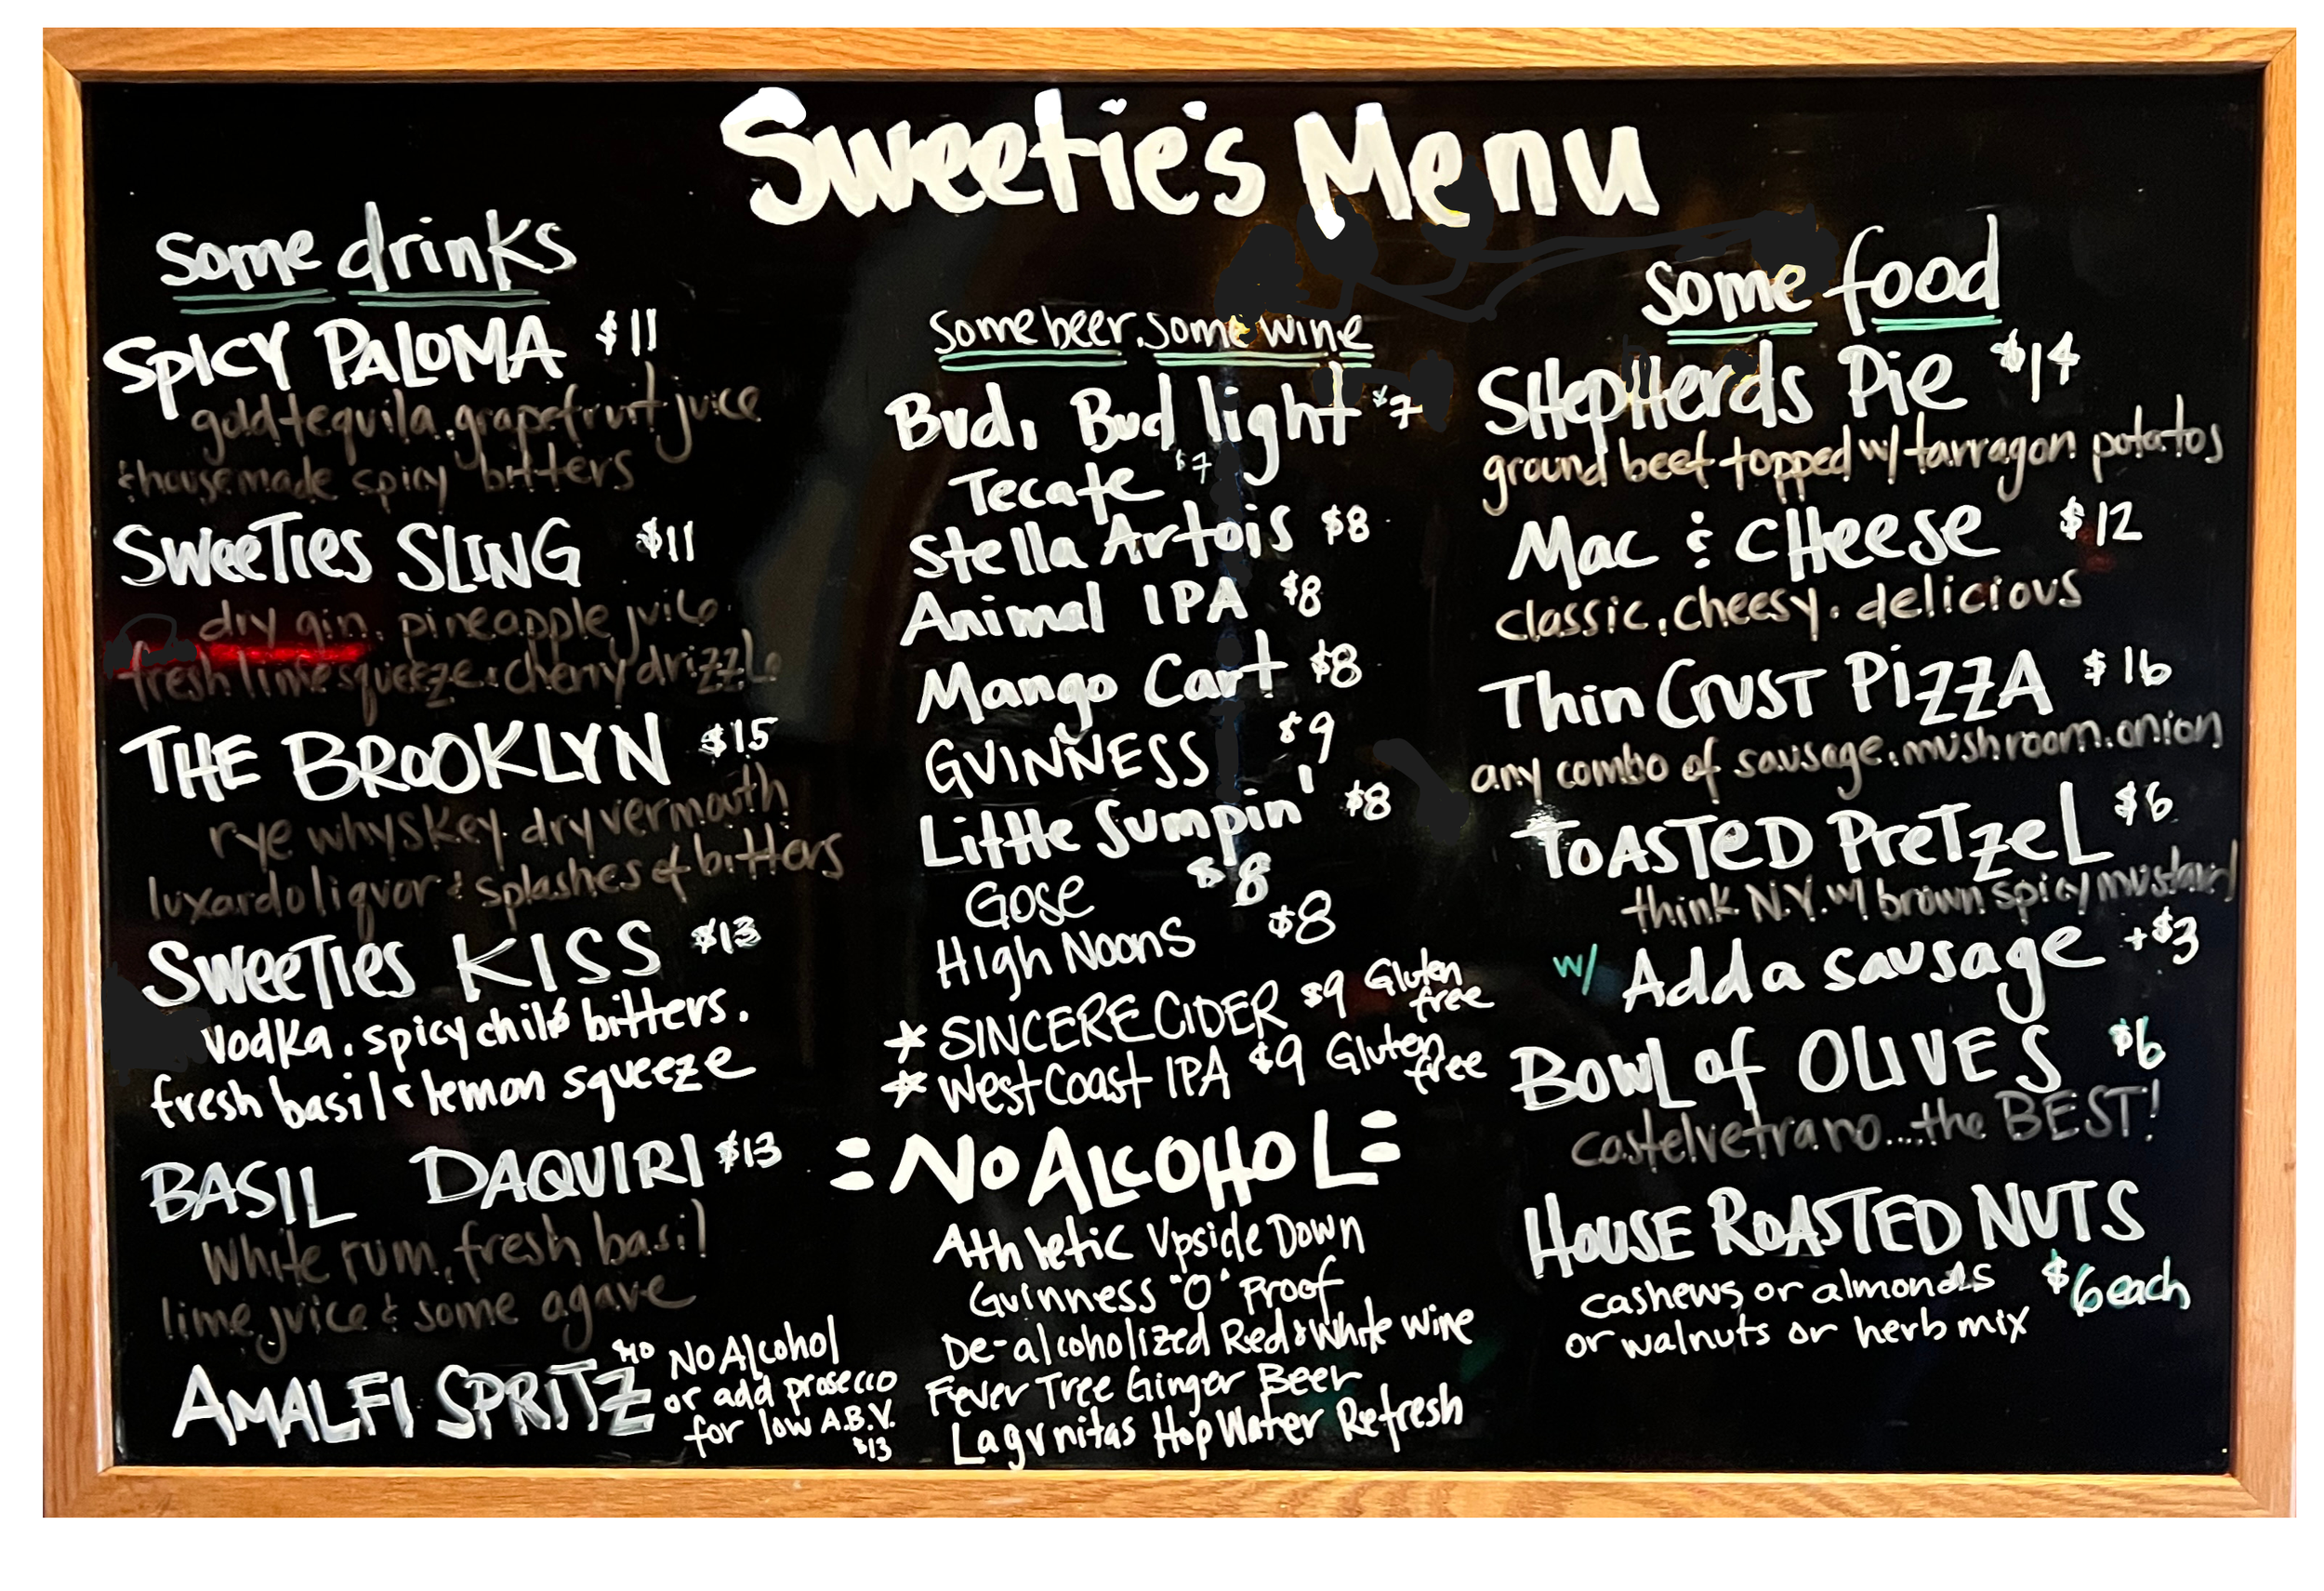 Sweetie's Menu
some drinks
SPICY PALOMA $11
gold tequila, grapefruit juice
& housemade spicy bitters
SWEETIES SLING $11
dry gin, pineapple juice
fresh lime squeeze & cherry drizzle
THE BROOKLYN $15
rye whyskey, dry vermouth
luxardo liquor & splashes of bitters
SWEETIES KISS $13
Vodka, spicy chile bitters,
fresh basil & lemon squeeze
BASIL DAQUIRI $13
White rum, fresh basil
lime juice & some agave
AMALFI SPRITZ $10 No Alcohol
or add prosecco
for low A.B.V.
$13
some beer, some wine
Bud, Bud light $7
Tecate $7
Stella Artois $8
Animal IPA $8
Mango Cart $8
GUINNESS $9
Little Sumpin' $8
Gose $8
High Noons $8
* SINCERE CIDER $9 Gluten free
* West Coast IPA $9 Gluten free
=NO ALCOHOL=
Athletic Upside Down
Guinness "O" Proof
De-alcoholized Red & White Wine
Fever Tree Ginger Beer
Lagunitas Hop Water Refresh
some food
SHepHerds Pie $14
ground beef topped w/ tarragon potatos
Mac & CHeese $12
classic, cheesy, delicious
Thin Crust PIZZA $16
any combo of sausage, mushroom, onion
TOASTED PRETZEL $6
think N.Y. w/ brown spicy mustard
w/ Add a sausage +$3
BOWL of OLIVES $6
castelvetrano....the BEST!
HOUSE ROASTED NUTS
cashews or almonds $6 each
or walnuts or herb mix